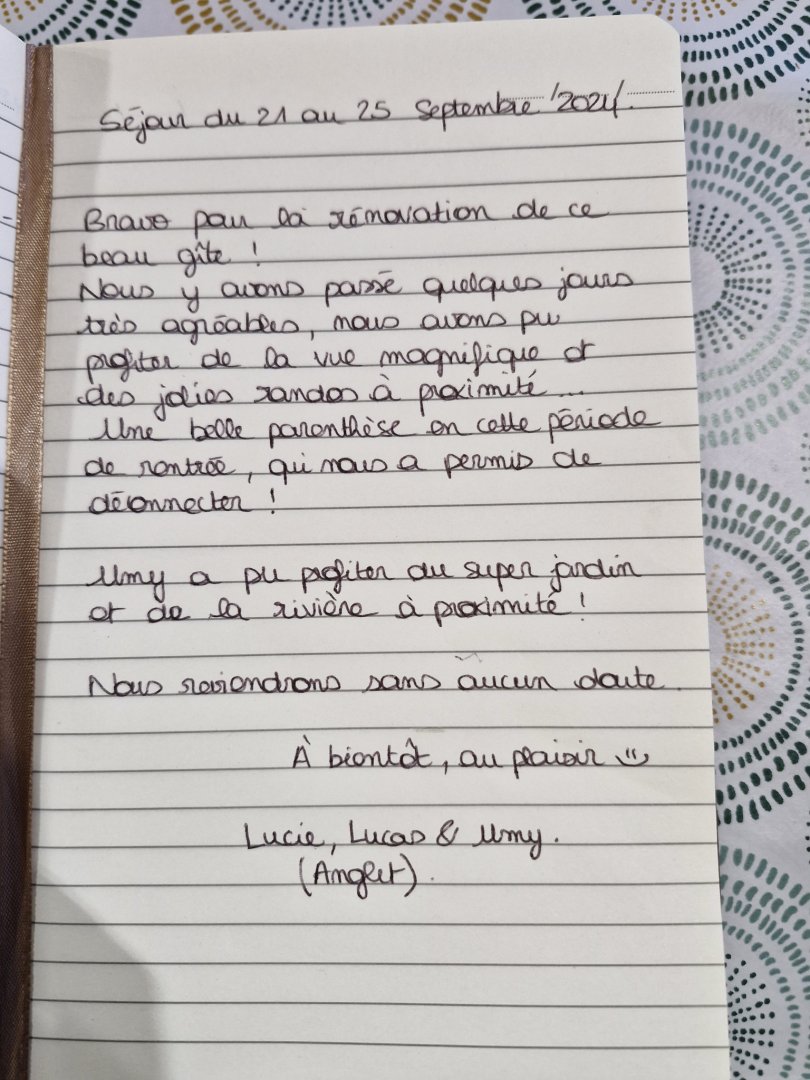 Séjour du 21 au 25 Septembre / 2021.
Bravo pour la rénovation de ce
beau gîte !
Nous y avons passé quelques jours
très agréables, nous avons pu
profiter de la vue magnifique et
des jolies randos à proximité...
Une belle parenthèse en cette période
de rentrée, qui nous a permis de
déconnecter !
Umy a pu profiter du super jardin
et de la rivière à proximité !
Nous reviendrons sans aucun doute.
À bientôt, au plaisir :)
Lucie, Lucas & Umy.
(Anglet).